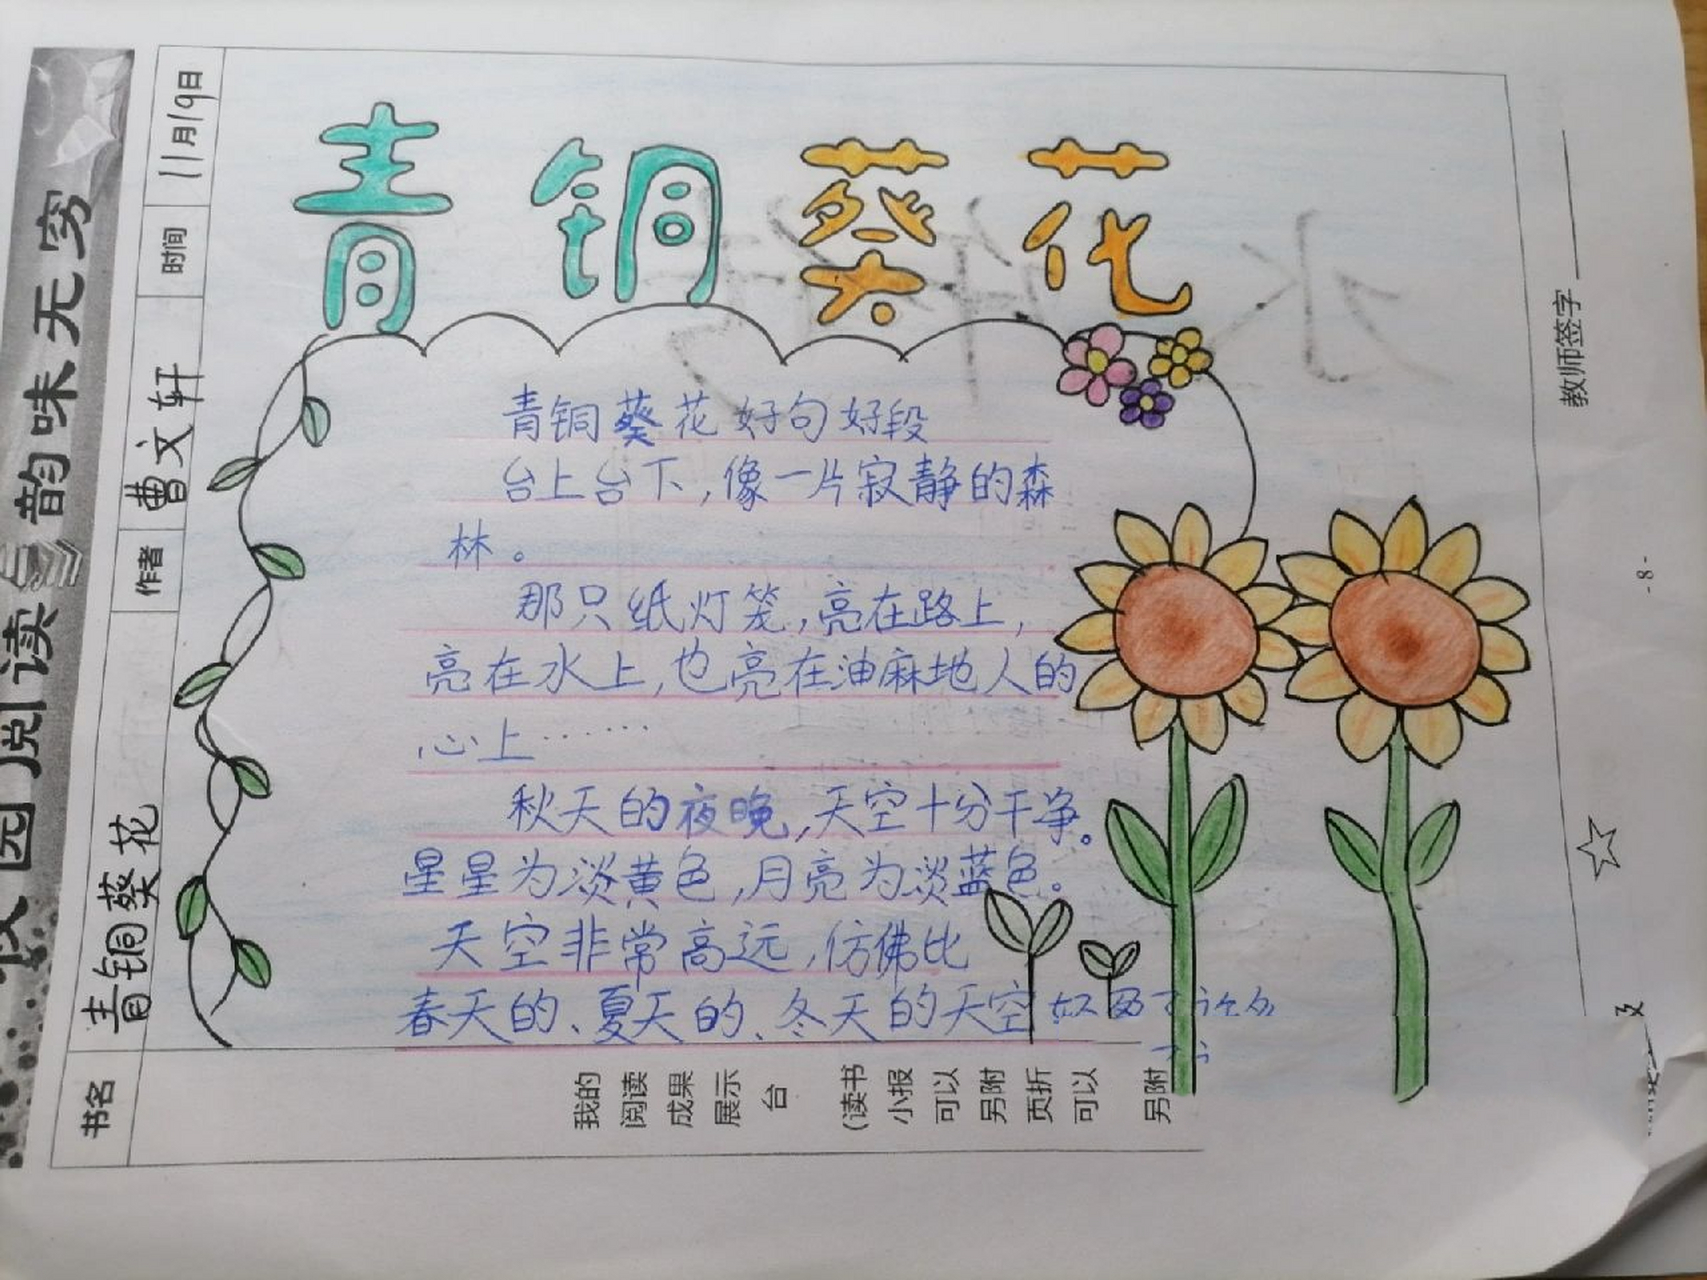 青铜葵花
青铜葵花好句好段
台上台下，像一片寂静的森
林。
那只纸灯笼，亮在路上，
亮在水上，也亮在油麻地人的
心上……
秋天的夜晚，天空十分干净。
星星为淡黄色，月亮为淡蓝色。
天空非常高远，仿佛比
春天的、夏天的、冬天的天空
书名
青铜葵花
作者
曹文轩
时间
11月19日
园阅读
韵味无穷
我的
阅读
成果
展示
台
(读书
小报
可以
另附
页折
可以
另附
教师签字
- 8 -